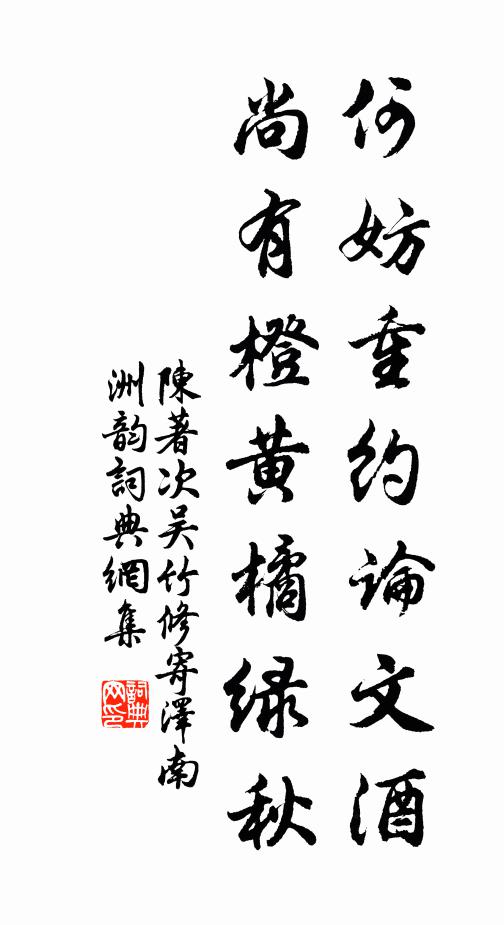 何妨重約論文酒
尚有橙黃橘緑秋
陳著次吴竹修寄澤南
洲韵詞典網集
詞典
网印